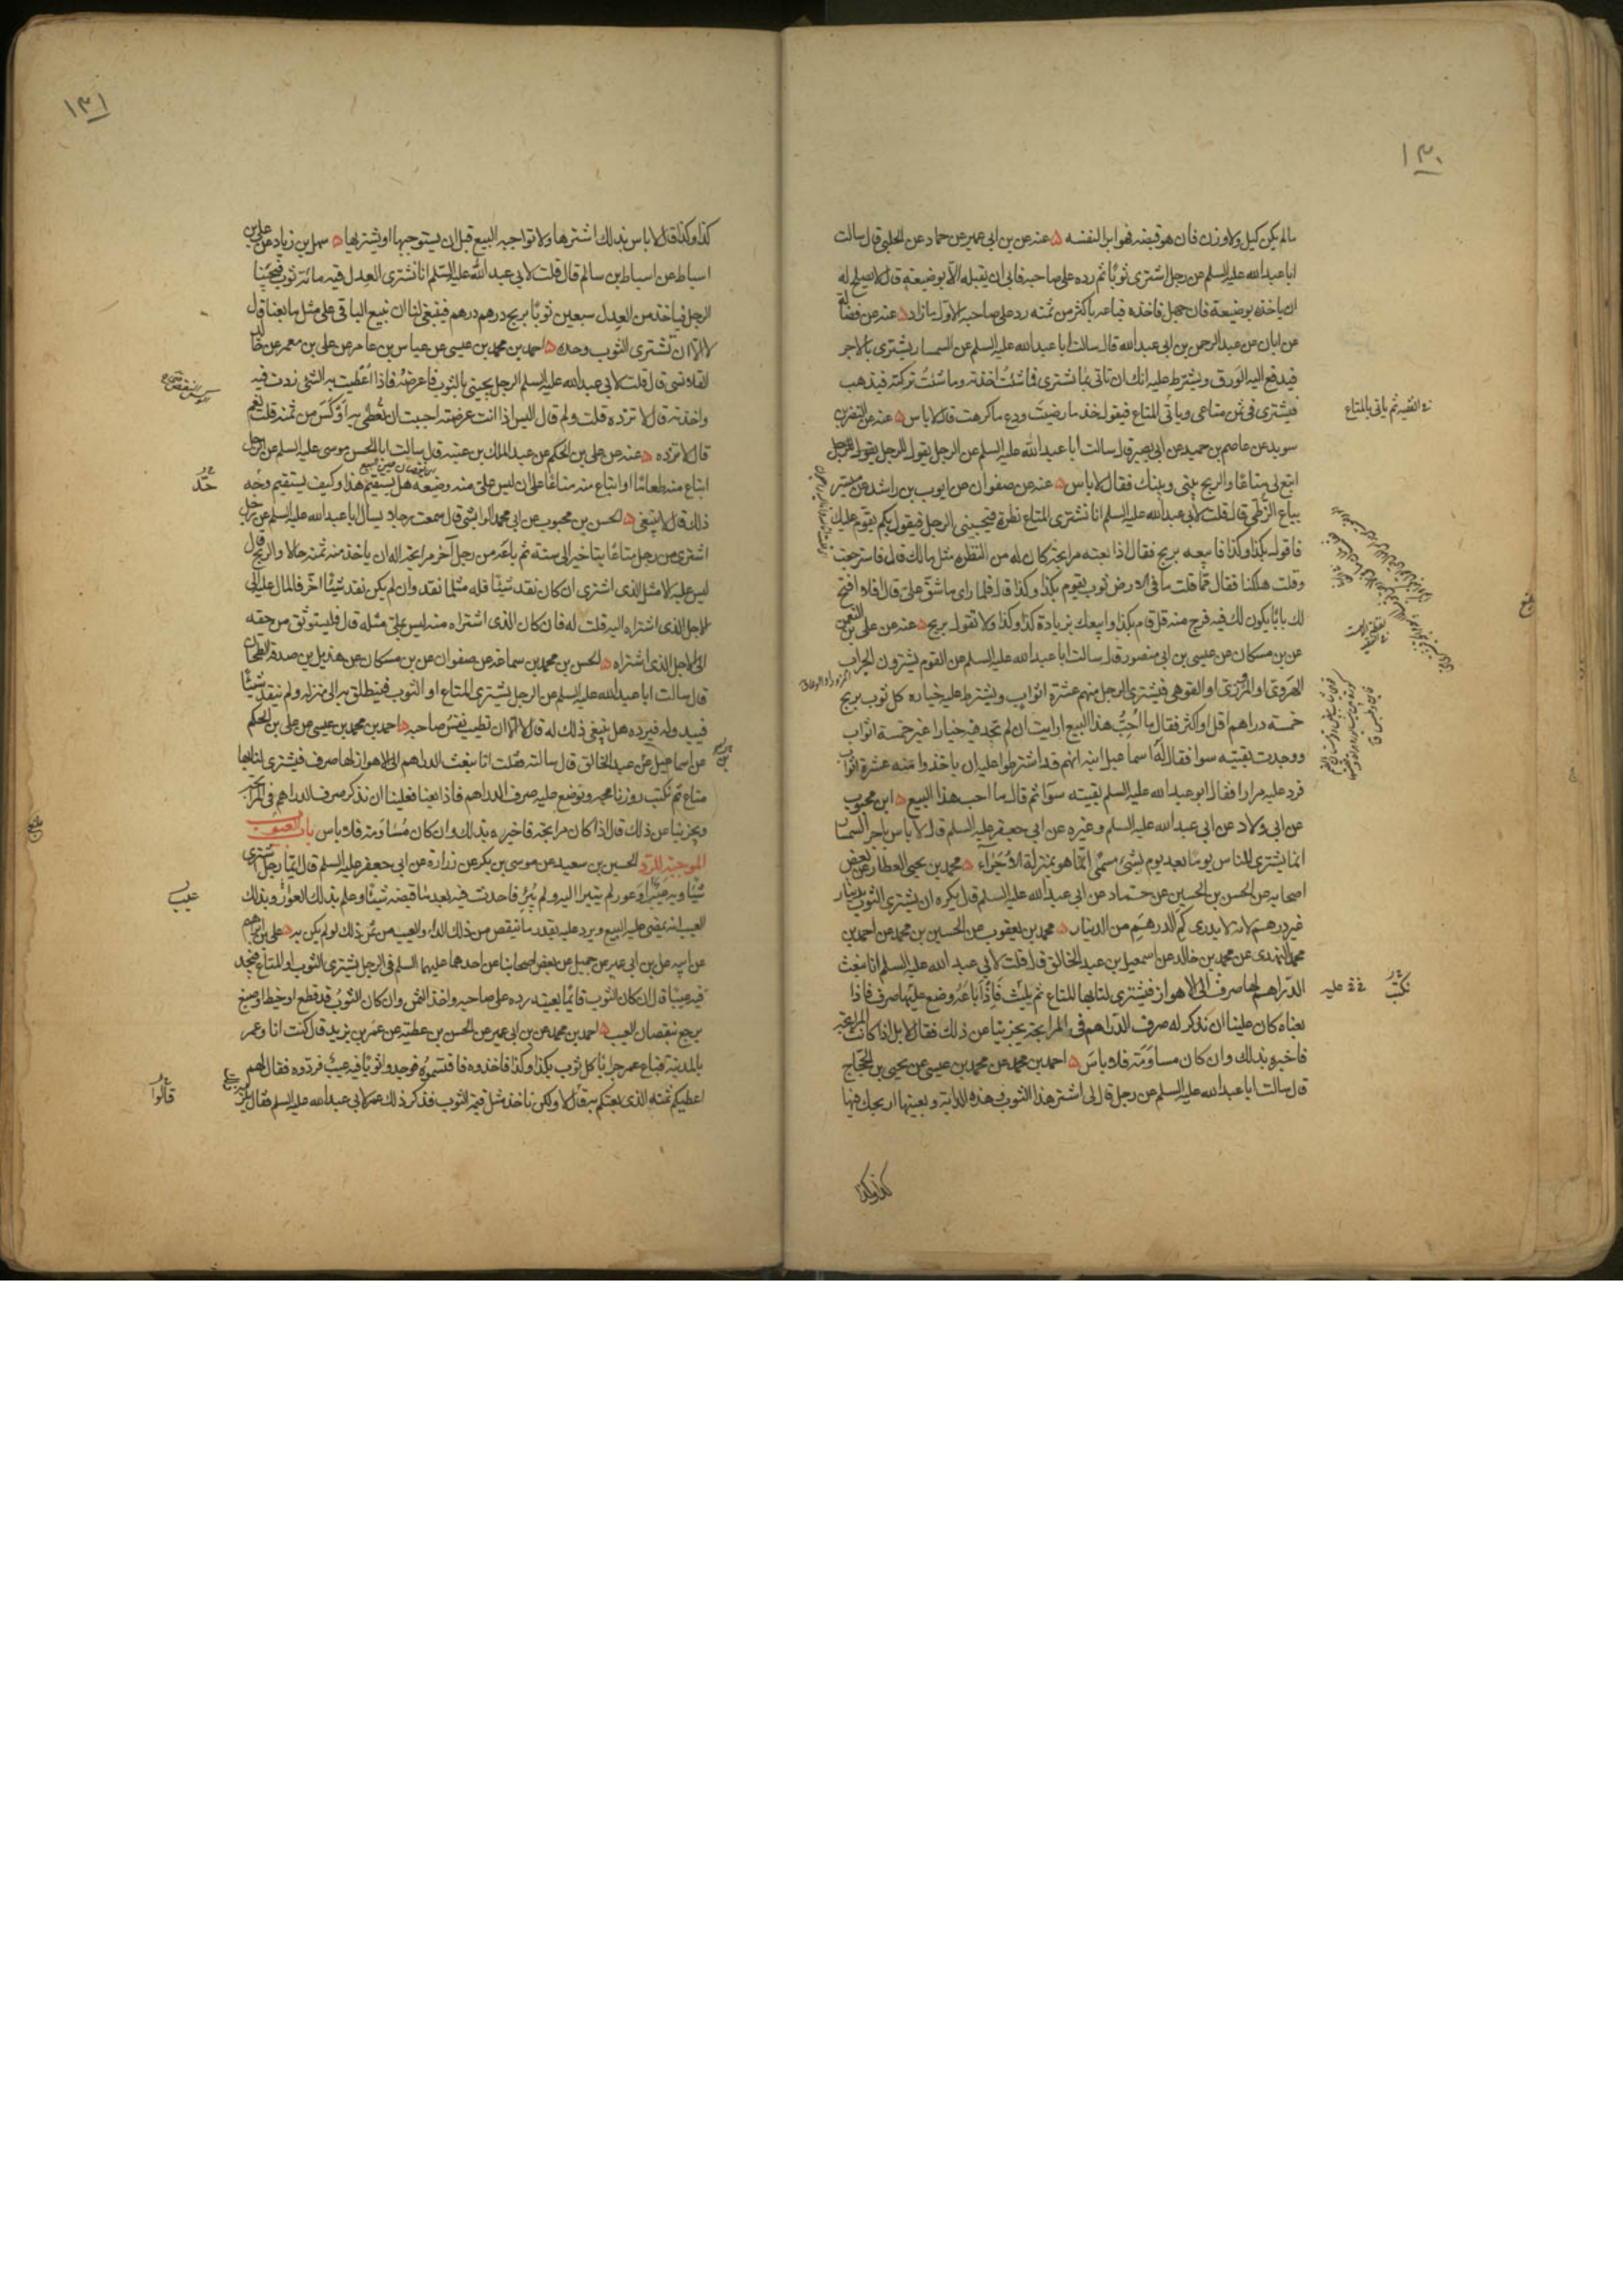 ١٣٠
مالم يكن كيل ولا وزن فان هو قبضه فهو ابرا لنفسه ه عنه عن بن ابي عمير عن حماد عن الحلبي قال سالت
ابا عبد الله عليه السلم عن رجل اشترى ثوبا ثم رده على صاحبه فابى ان يقبله الا بوضيعة قال لا يصلح له
ان ياخذه بوضيعة فان جهل فاخذه فباعه باكثر من ثمنه رد على صاحبه الاول ما زاد ه عنه عن فضالة
عن ابان عن عبد الرحمن بن ابي عبد الله قال سالت ابا عبد الله عليه السلم عن السمسار يشترى بالاجر
فيدفع اليه الورق ويشترط عليه انك ان تاتى بما تشترى فما شئت اخذته وما شئت تركته فيذهب
فيشترى ثم ياتى بالمتاع فيقول خذ ما رضيت ودع ما كرهت قال لا باس ه عنه عن النضر بن
سويد عن عاصم بن حميد عن ابي بصير قال سالت ابا عبد الله عليه السلم عن الرجل يقول للرجل
ابتع لى متاعا والربح بينى وبينك فقال لا باس ه عنه عن صفوان عن ايوب بن راشد عن ميسر
بياع الزطى قال قلت لابي عبد الله عليه السلم انا نشترى المتاع نظرة فيجيئنى الرجل فيقول بكم يقوم عليك
فاقول بكذا وكذا فابيعه بربح فقال اذا بعته مرابحة كان له من النظره مثل مالك قال فاسترجعت
وقلت هلكنا فقال مما قلت ما فى الارض ثوب يقوم بكذا وكذا قال فلما راى ما شق على قال افلا افتح
لك بابا يكون لك فيه فرج منه قل قام بكذا وابيعك بزيادة كذا وكذا ولا تقول بربح ه عنه عن على بن النعمن
عن بن مسكان عن عيسى بن ابي منصور قال سالت ابا عبد الله عليه السلم عن القوم يشترون الجراب
الهروى او المروزى او القوهى فيشترى الرجل منهم عشرة اثواب ويشترط عليه خياره كل ثوب بربح
خمسه دراهم اقل او اكثر فقال ما احب هذا البيع ارايت ان لم تجد فيه خيارا غير خمسة اثواب
ووجدت بقيته سوا فقال له اسماعيل ابنه انهم قد اشترطوا عليه ان ياخذوا منه عشرة اثواب
فرد عليه مرارا فقال ابو عبد الله عليه السلم بقيته سوا ثم قال ما احب هذا البيع ه ابن محبوب
عن ابى ولاد عن ابى عبد الله عليه السلم وغيره عن ابى جعفر عليه السلم قال لا باس باجر السمسار
انما يشترى للناس يوما بعد يوم بشئ مسمى انما هو بمنزلة الاجراء ه محمد بن يحيى العطار عن بعض
اصحابه عن الحسن بن الحسين عن حماد عن ابى عبد الله عليه السلم قال يكره ان يشترى الثوب بدينار
غير درهم لانه لا يدرى كم الدرهم من الدينار ه محمد بن يعقوب عن الحسين بن محمد عن احمد بن
محمد النهدى عن محمد بن خالد عن اسمعيل بن عبد الخالق قال قلت لابى عبد الله عليه السلم انا نبعث
الدراهم لها صرف الى الاهواز فيشترى لنا بها المتاع ثم نلبث فاذا باعه وضع عليها صرف فاذا
بعناه كان علينا ان نذكر له صرف الدراهم فى المرابحة يجزينا عن ذلك فقال لا بل اذا كانت المرابحة
فاخبره بذلك وان كان مساومة فلا باس ه احمد بن محمد عن محمد بن عيسى عن يحيى بن الحجاج
قال سالت ابا عبد الله عليه السلم عن رجل قال لى اشتر هذا الثوب وهذه الدابة وبعينها اربحك فيها
كذا وكذا
ثم ياتى بالمتاع
بلغ
نكتب
عليه
١٣١
كذا وكذا قال لا باس بذلك اشترها ولا تواجبه البيع قبل ان يستوجبها او يشتريها ه سهل بن زياد عن على بن
اسباط عن اسباط بن سالم قال قلت لابى عبد الله عليه السلم انا نشترى العدل فيه مائة ثوب فيجيئنا
الرجل فياخذ من العدل سبعين ثوبا بربح درهم درهم فينبغى لنا ان نبيع الباقى على مثل ما بعنا قال
لا الا ان تشترى الثوب وحده ه احمد بن محمد بن عيسى عن عباس بن عامر عن على بن معمر عن خالد
القلانسى قال قلت لابى عبد الله عليه السلم الرجل يجيئنى بالثوب فاعرضه فاذا اعطيت به الشئ زدت فيه
واخذته قال لا تزده قلت ولم قال اليس اذا انت عرضته احببت ان تعطى به اوكس من ثمنه قلت نعم
قال لا تزده ه عنه عن على بن الحكم عن عبد الملك بن عتبه قال سالت ابا الحسن موسى عليه السلم عن الرجل
ابتاع منه طعاما او ابتاع منه متاعا على ان ليس على منه وضيعه هل يستقيم هذا وكيف يستقيم وجه
ذلك قال لا ينبغى ه الحسن بن محبوب عن ابى محمد الوابشى قال سمعت رجلا يسال ابا عبد الله عليه السلم عن رجل
اشترى من رجل متاعا بتاخير الى سنة ثم باعه من رجل آخر مرابحة اله ان ياخذ منه ثمنه حالا والربح قال
ليس عليه الا مثل الذى اشترى ان كان نقد شيئا فله مثل ما نقد وان لم يكن نقد شيئا آخر فالمال عليه الى
الاجل الذى اشتراه اليه قلت له فان كان الذى اشتراه منه ليس بملى مثله قال فليستوثق من حقه
الى الاجل الذى اشتراه ه الحسن بن محمد بن سماعة عن صفوان عن بن مسكان عن هذيل بن صدقة الطحان
قال سالت ابا عبد الله عليه السلم عن الرجل يشترى المتاع او الثوب فينطلق به الى منزله ولم ينقد شيئا
فيبدو له فيرده هل ينبغى ذلك له قال لا الا ان تطيب نفس صاحبه ه احمد بن محمد بن عيسى عن على بن الحكم
عن اسماعيل عن عبد الخالق قال سالته فقلت انا نبعث الدراهم الى الاهواز لها صرف فيشترى لنا بها
متاع ثم نكتب روزنامجه ونوضع عليه صرف الدراهم فاذا بعنا فعلينا ان نذكر صرف الدراهم فى المرابحة
ويجزينا عن ذلك قال اذا كان مرابحة فاخبره بذلك وان كان مساومة فلا باس باب العيوب
الموجبة للرد الحسين بن سعيد عن موسى بن بكر عن زرارة عن ابى جعفر عليه السلم قال ايما رجل اشترى
شيئا وبه عيب او عوار لم يتبرا اليه ولم يبرء فاحدث فيه بعد ما قبضه شيئا وعلم بذلك العوار وبذلك
العيب انه يمضى عليه البيع ويرد عليه بقدر ما نقص من ذلك الداء والعيب من ثمن ذلك لو لم يكن به ه على بن ابراهيم
عن ابيه عن بن ابى عمير عن جميل عن بعض اصحابنا عن احدهما عليهما السلم فى الرجل يشترى الثوب او المتاع فيجد
فيه عيبا قال ان كان الثوب قائما بعينه رده على صاحبه واخذ الثمن وان كان الثوب قد قطع او خيط او صبغ
يرجع بنقصان العيب ه احمد بن محمد عن بن ابى عمير عن الحسن بن عطية عن عمر بن يزيد قال كنت انا وعمر
بالمدينة فباع عمر جرابا كل ثوب بكذا وكذا فاخذوه فاقتسموه فوجدوا ثوبا فيه عيب فردوه فقال لهم
اعطيكم ثمنه الذى بعتكم به قال لا ولكن ناخذ مثل قيمة الثوب فذكر ذلك عمر لابى عبد الله عليه السلم فقال يلزمه
عيب
قالوا
بلغ